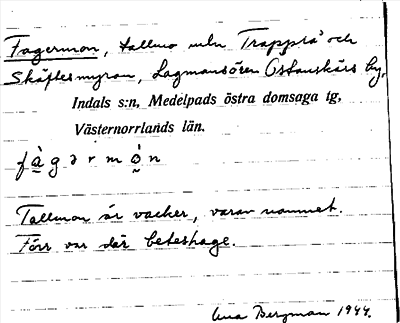 Fagermon, tallmo mln Trapptå och
Skäftesmyran, Lagmansören Östanskärs by,
Indals s:n, Medelpads östra domsaga tg,
Västernorrlands län.
fàgərmòn
Tallmon är vacker, varav namnet.
Förr var där beteshage.
Bergman 1944.